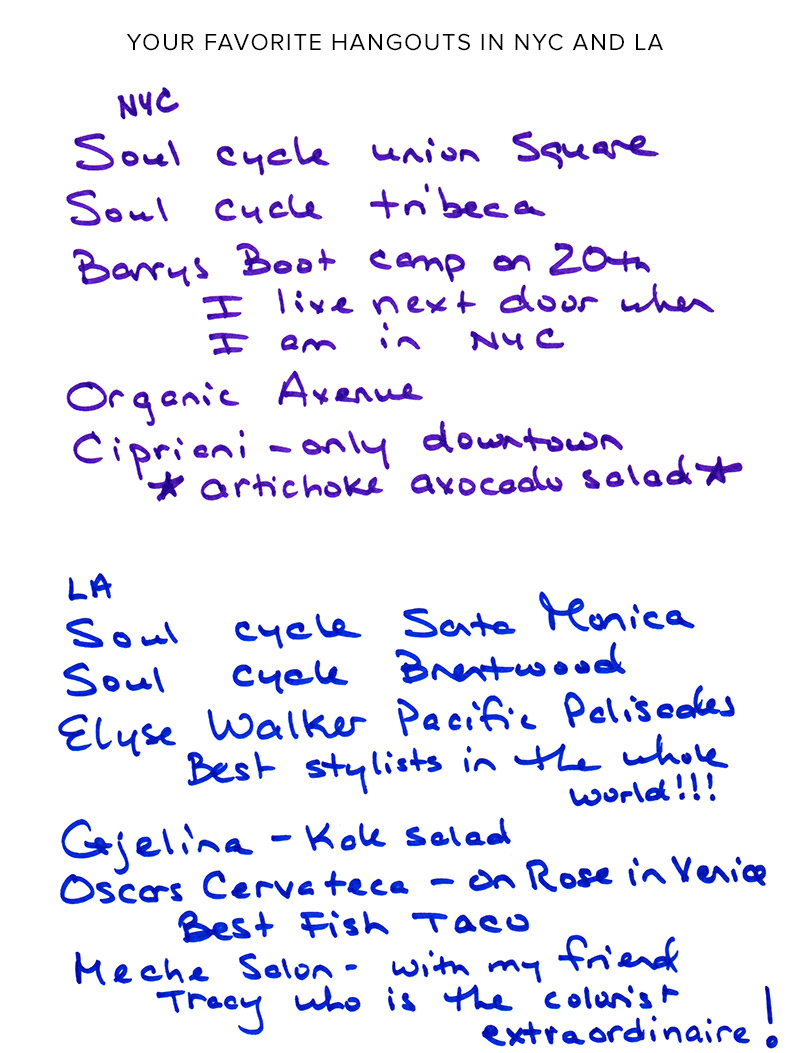 YOUR FAVORITE HANGOUTS IN NYC AND LA
NYC
Soul cycle union Square
Soul cycle tribeca
Barrys Boot camp on 20th
I live next door when
I am in NYC
Organic Avenue
Cipriani - only downtown
★ artichoke avocado salad ★
LA
Soul cycle Santa Monica
Soul cycle Brentwood
Elyse Walker Pacific Palisades
Best stylists in the whole
world!!!
Gjelina - Kale salad
Oscars Cervateca - on Rose in Venice
Best Fish Taco
Meche Salon - with my friend
Tracy who is the colorist
extraordinaire!